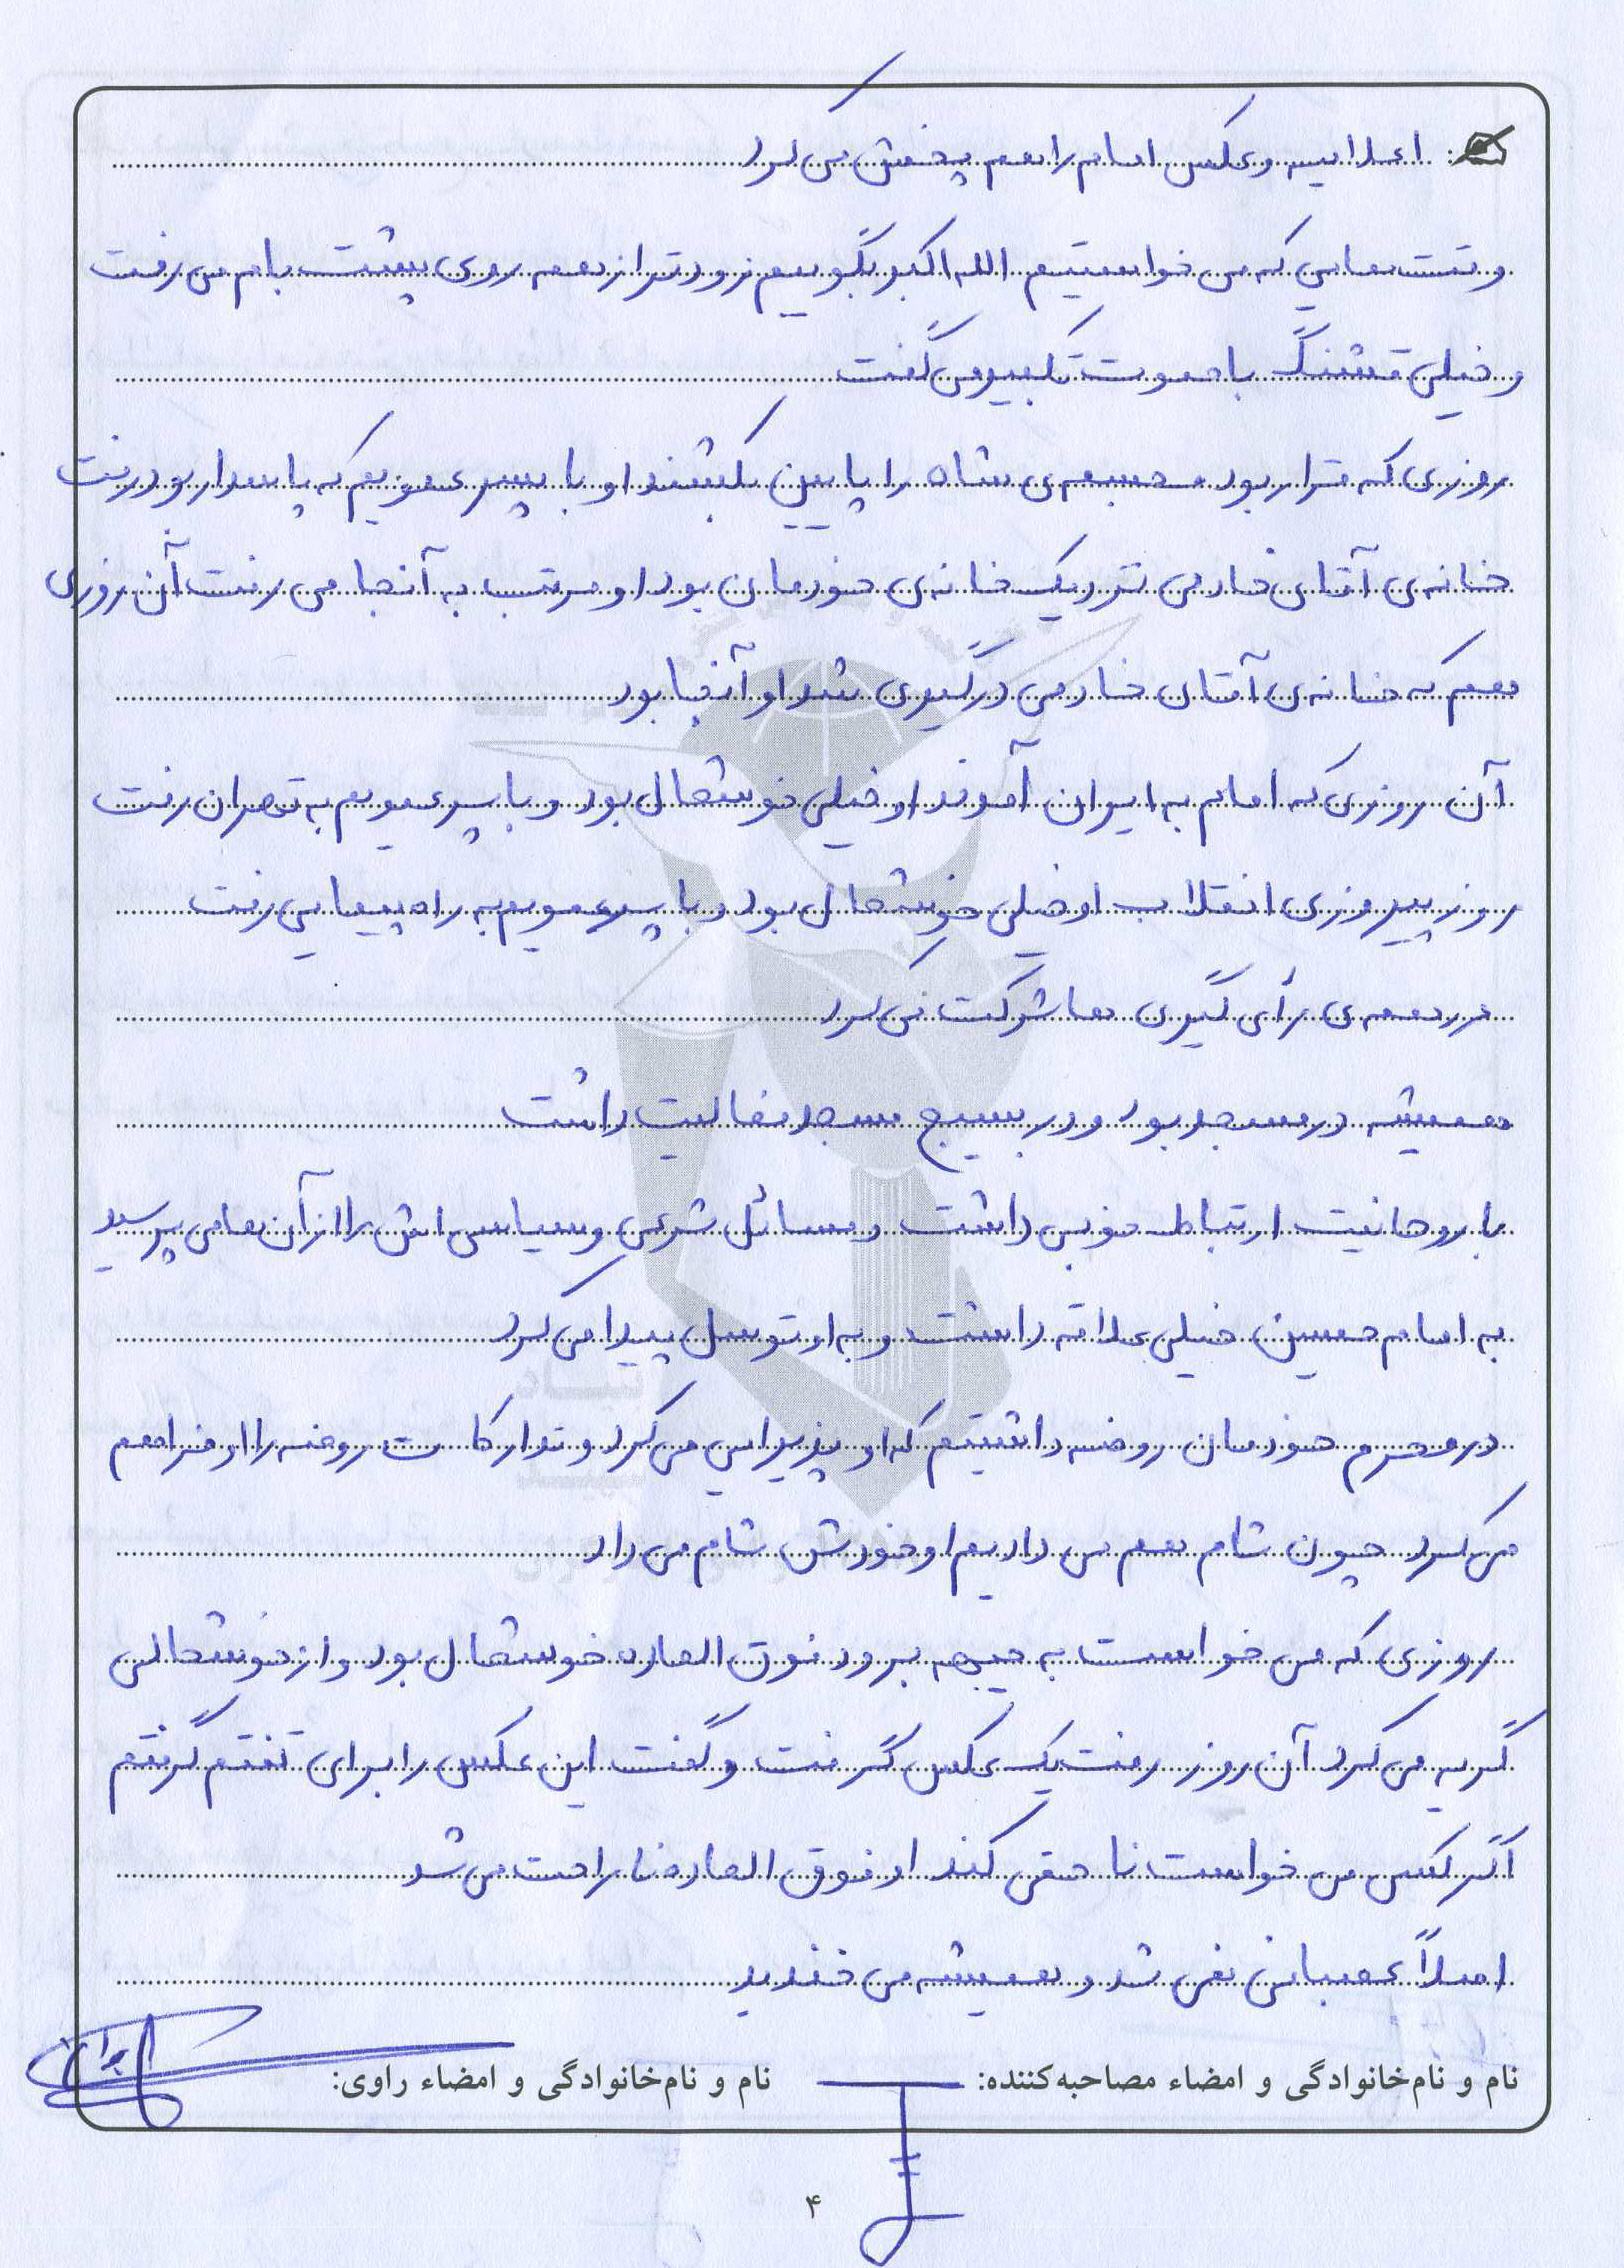 اعلامیه و عکس امام را هم پخش می کرد
وقت هایی که می خواستیم الله اکبر بگوییم زودتر از همه روی پشت بام می رفت
و خیلی قشنگ با صوت تکبیر می گفت
روزی که قرار بود مجسمه ی شاه را پایین بکشند او با پسر عمویم که پاسدار بود رفت
خانه ی آقای خادمی نزدیک خانه ی خودمان بود او مرتب به آنجا می رفت آن روزی
هم که خانه ی آقای خادمی درگیری شد او آنجا بود
آن روزی که امام به ایران آمدند او خیلی خوشحال بود و با پسر عمویم به تهران رفت
روز پیروزی انقلاب او خیلی خوشحال بود و با پسر عمویم به راه پیمایی رفت
در همه ی رأی گیری ها شرکت می کرد
همیشه در مسجد بود و در بسیج مسجد فعالیت داشت
با روحانیت ارتباط خوبی داشت و مسائل شرعی و سیاسی اش را از آن ها می پرسید
به امام حسین خیلی علاقه داشت و به او توسل پیدا می کرد
در محرم خودمان روضه داشتیم که او پذیرایی می کرد و تدارکات روضه را او فراهم
می کرد چون شام هم می دادیم او خودش شام می داد
روزی که می خواست به جبهه برود فوق العاده خوشحال بود و از خوشحالی
گریه می کرد آن روز رفت یک عکس گرفت و گفت این عکس را برای گرفتم
اگر کسی می خواست نا حقی کند او فوق العاده نا راحت می شد
اصلاً عصبانی نمی شد و همیشه می خندید
نام و نام‌خانوادگی و امضاء مصاحبه‌کننده:
نام و نام‌خانوادگی و امضاء راوی:
۴